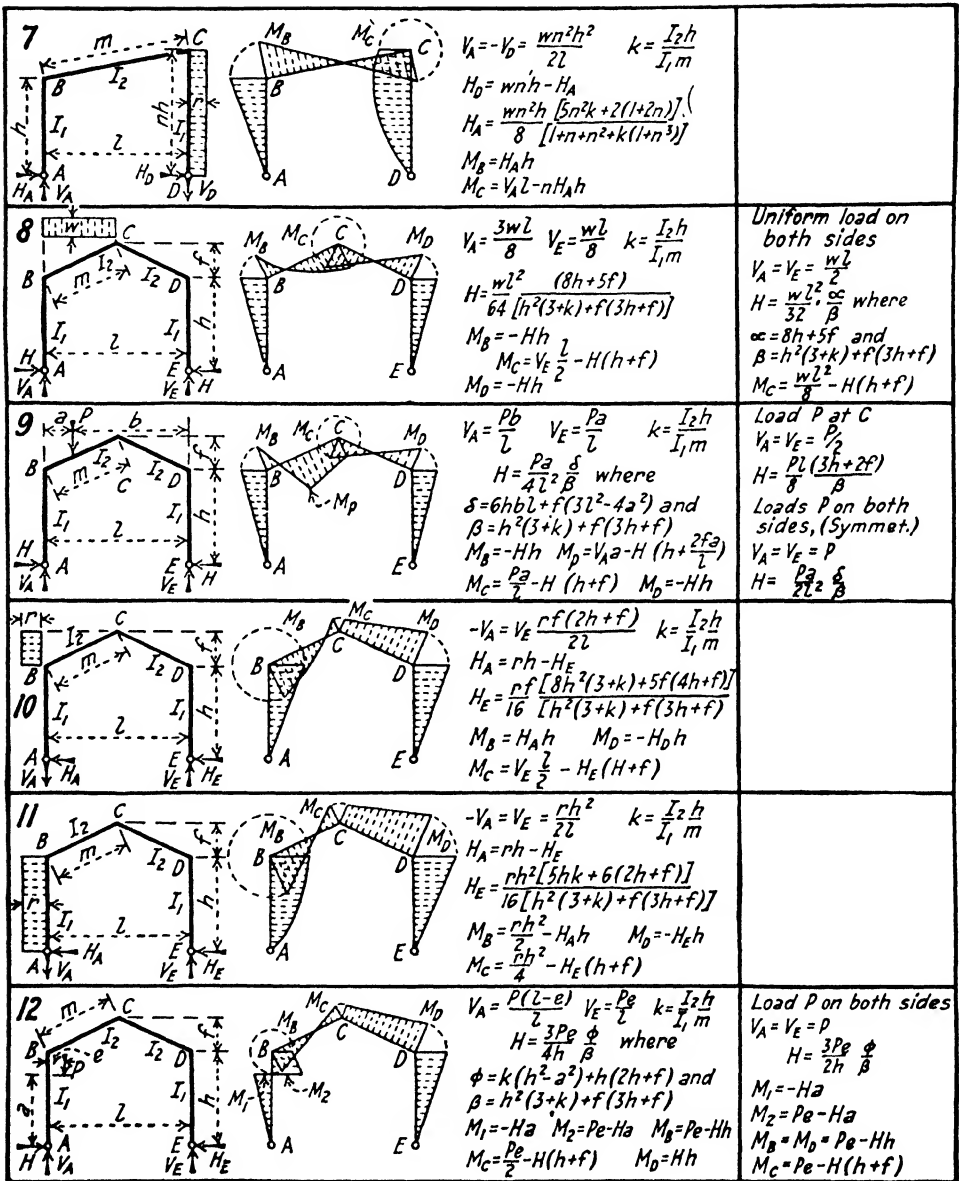 7
m
C
B
I₂
h
I₁
l
nh
I₁
r
H_A
A
V_A
H_D
D
V_D
M_B
M_C
C
B
A
D
V_A=-V_D= wn²h²/2l k= I₂h/I₁m
H_D= wnh-H_A
H_A= wn²h/8 [5n²k+2(1+2n)]/[1+n+n²+k(1+n³)]
M_B=H_Ah
M_C=V_Al-nH_Ah
8
w
C
f
B
I₂
m
I₂
D
I₁
I₁
h
l
H
A
V_A
E
H
V_E
M_B
M_C
C
M_D
B
D
A
E
V_A= 3wl/8 V_E= wl/8 k= I₂h/I₁m
H= wl²/64 (8h+5f)/[h²(3+k)+f(3h+f)]
M_B=-Hh
M_C=V_E l/2 -H(h+f)
M_D=-Hh
Uniform load on
both sides
V_A=V_E= wl/2
H= wl²/32 · ∝/β where
∝=8h+5f and
β=h²(3+k)+f(3h+f)
M_C= wl²/8 -H(h+f)
9
a
P
b
f
B
I₂
m
I₂
D
C
I₁
I₁
h
l
H
A
V_A
E
H
V_E
M_B
M_C
C
M_D
B
D
M_P
A
E
V_A= Pb/l V_E= Pa/l k= I₂h/I₁m
H= Pa/4l² δ/β where
δ=6hbl+f(3l²-4a²) and
β=h²(3+k)+f(3h+f)
M_B=-Hh M_P=V_Aa-H(h+ 2fa/l)
M_C= Pa/l -H (h+f) M_D=-Hh
Load P at C
V_A=V_E= P/2
H= Pl/8 (3h+2f)/β
Loads P on both
sides, (Symmet.)
V_A=V_E=P
H= Pa/2l² δ/β
10
r
C
f
B
I₂
m
I₂
D
I₁
I₁
h
l
A
H_A
V_A
E
H_E
V_E
M_B
M_C
C
M_D
B
D
A
E
-V_A=V_E rf(2h+f)/2l k= I₂h/I₁m
H_A=rh-H_E
H_E= rf/16 [8h²(3+k)+5f(4h+f)]/[h²(3+k)+f(3h+f)
M_B=H_Ah M_D=-H_Dh
M_C=V_E l/2 -H_E(H+f)
11
C
f
B
I₂
m
I₂
D
r
I₁
I₁
h
l
A
H_A
V_A
E
H_E
V_E
M_B
M_C
C
M_D
B
D
A
E
-V_A=V_E= rh²/2l k= I₂h/I₁m
H_A=rh-H_E
H_E= rh²[5hk+6(2h+f)]/16[h²(3+k)+f(3h+f)]
M_B= rh²/2 -H_Ah M_D=-H_Eh
M_C= rh²/4 -H_E(h+f)
12
m
C
f
B
I₂
I₂
D
e
P
a
I₁
I₁
h
l
H
A
V_A
E
H_E
V_E
M_B
M_C
C
M_D
B
D
M₁
M₂
A
E
V_A= P(l-e)/l V_E= Pe/l k= I₂h/I₁m
H= 3Pe/4h ϕ/β where
ϕ=k(h²-a²)+h(2h+f) and
β=h²(3+k)+f(3h+f)
M₁=-Ha M₂=Pe-Ha M_B=Pe-Hh
M_C= Pe/2 -H(h+f) M_D=Hh
Load P on both sides
V_A=V_E=P
H= 3Pe/2h ϕ/β
M₁=-Ha
M₂=Pe-Ha
M_B=M_D=Pe-Hh
M_C=Pe-H(h+f)